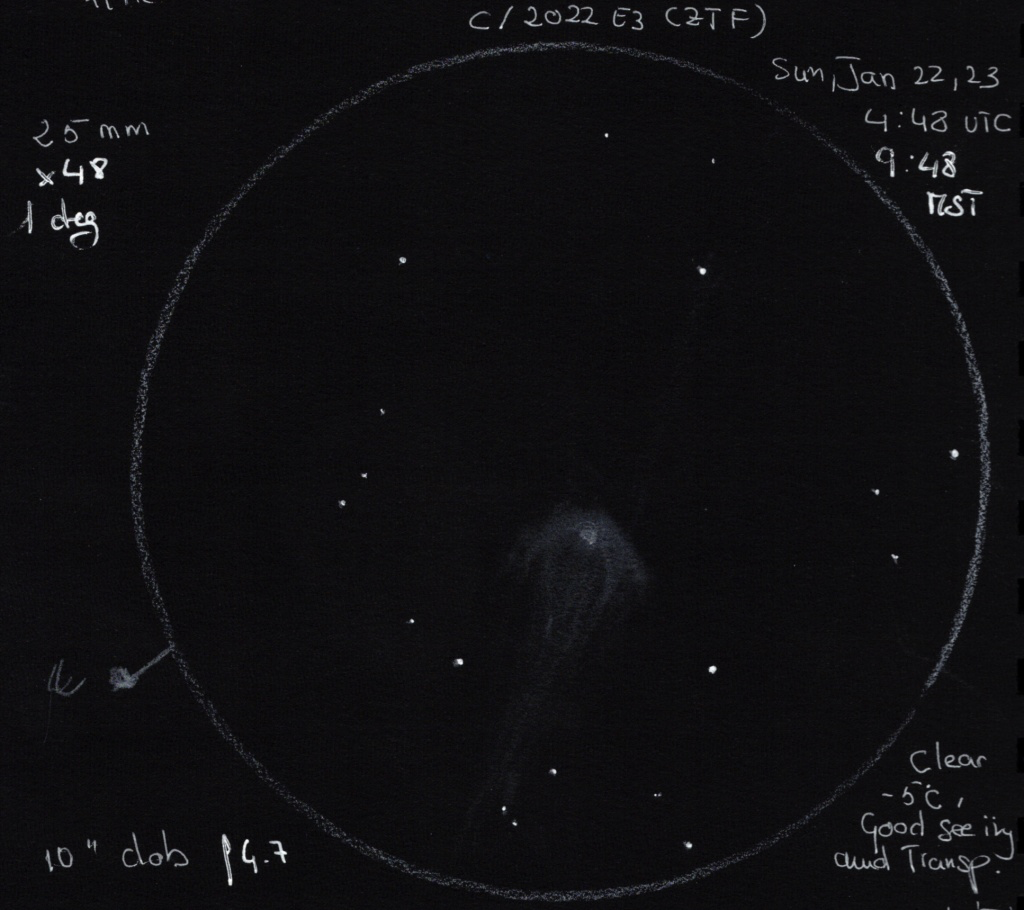 C/2022 E3 (ZTF)
Sun, Jan 22, 23
4:48 UTC
9:48
MST
25 mm
x48
1 deg
10" dob f4.7
Clear
-5°C,
Good seeing
and Transp.